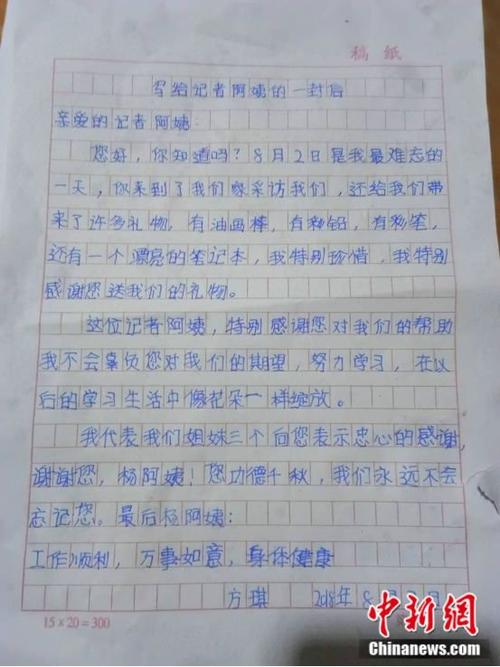 稿 纸
写给记者阿姨的一封后
亲爱的记者阿姨：
您好，你知道吗？8月2日是我最难忘的
一天，你来到了我们家采访我们，还给我们带
来了许多礼物，有油画棒，有彩铅，有彩笔，
还有一个漂亮的笔记本，我特别珍惜，我特别
感谢您送我们的礼物。
这位记者阿姨，特别感谢您对我们的帮助
我不会辜负您对我们的期望，努力学习，在以
后的学习生活中像花朵一样绽放。
我代表我们姐妹三个向您表示忠心的感谢，
谢谢您，杨阿姨！您功德千秋，我们永远不会
忘记您。最后杨阿姨：
工作顺利，万事如意，身体健康
方琪 2018年8月
15×20=300
中新网
Chinanews.com